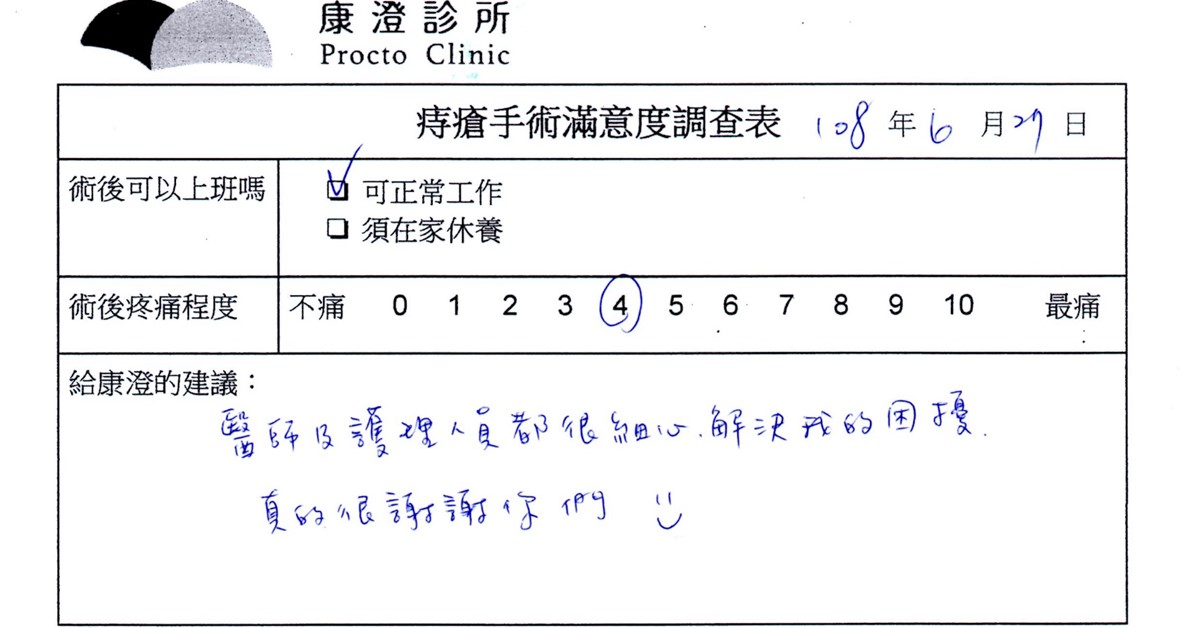 康澄診所
Procto Clinic
痔瘡手術滿意度調查表 108 年 6 月 27 日
術後可以上班嗎 可正常工作
須在家休養
術後疼痛程度 不痛 0 1 2 3 4 5 6 7 8 9 10 最痛
給康澄的建議：
醫師及護理人員都很細心.解決我的困擾.
真的很謝謝你們